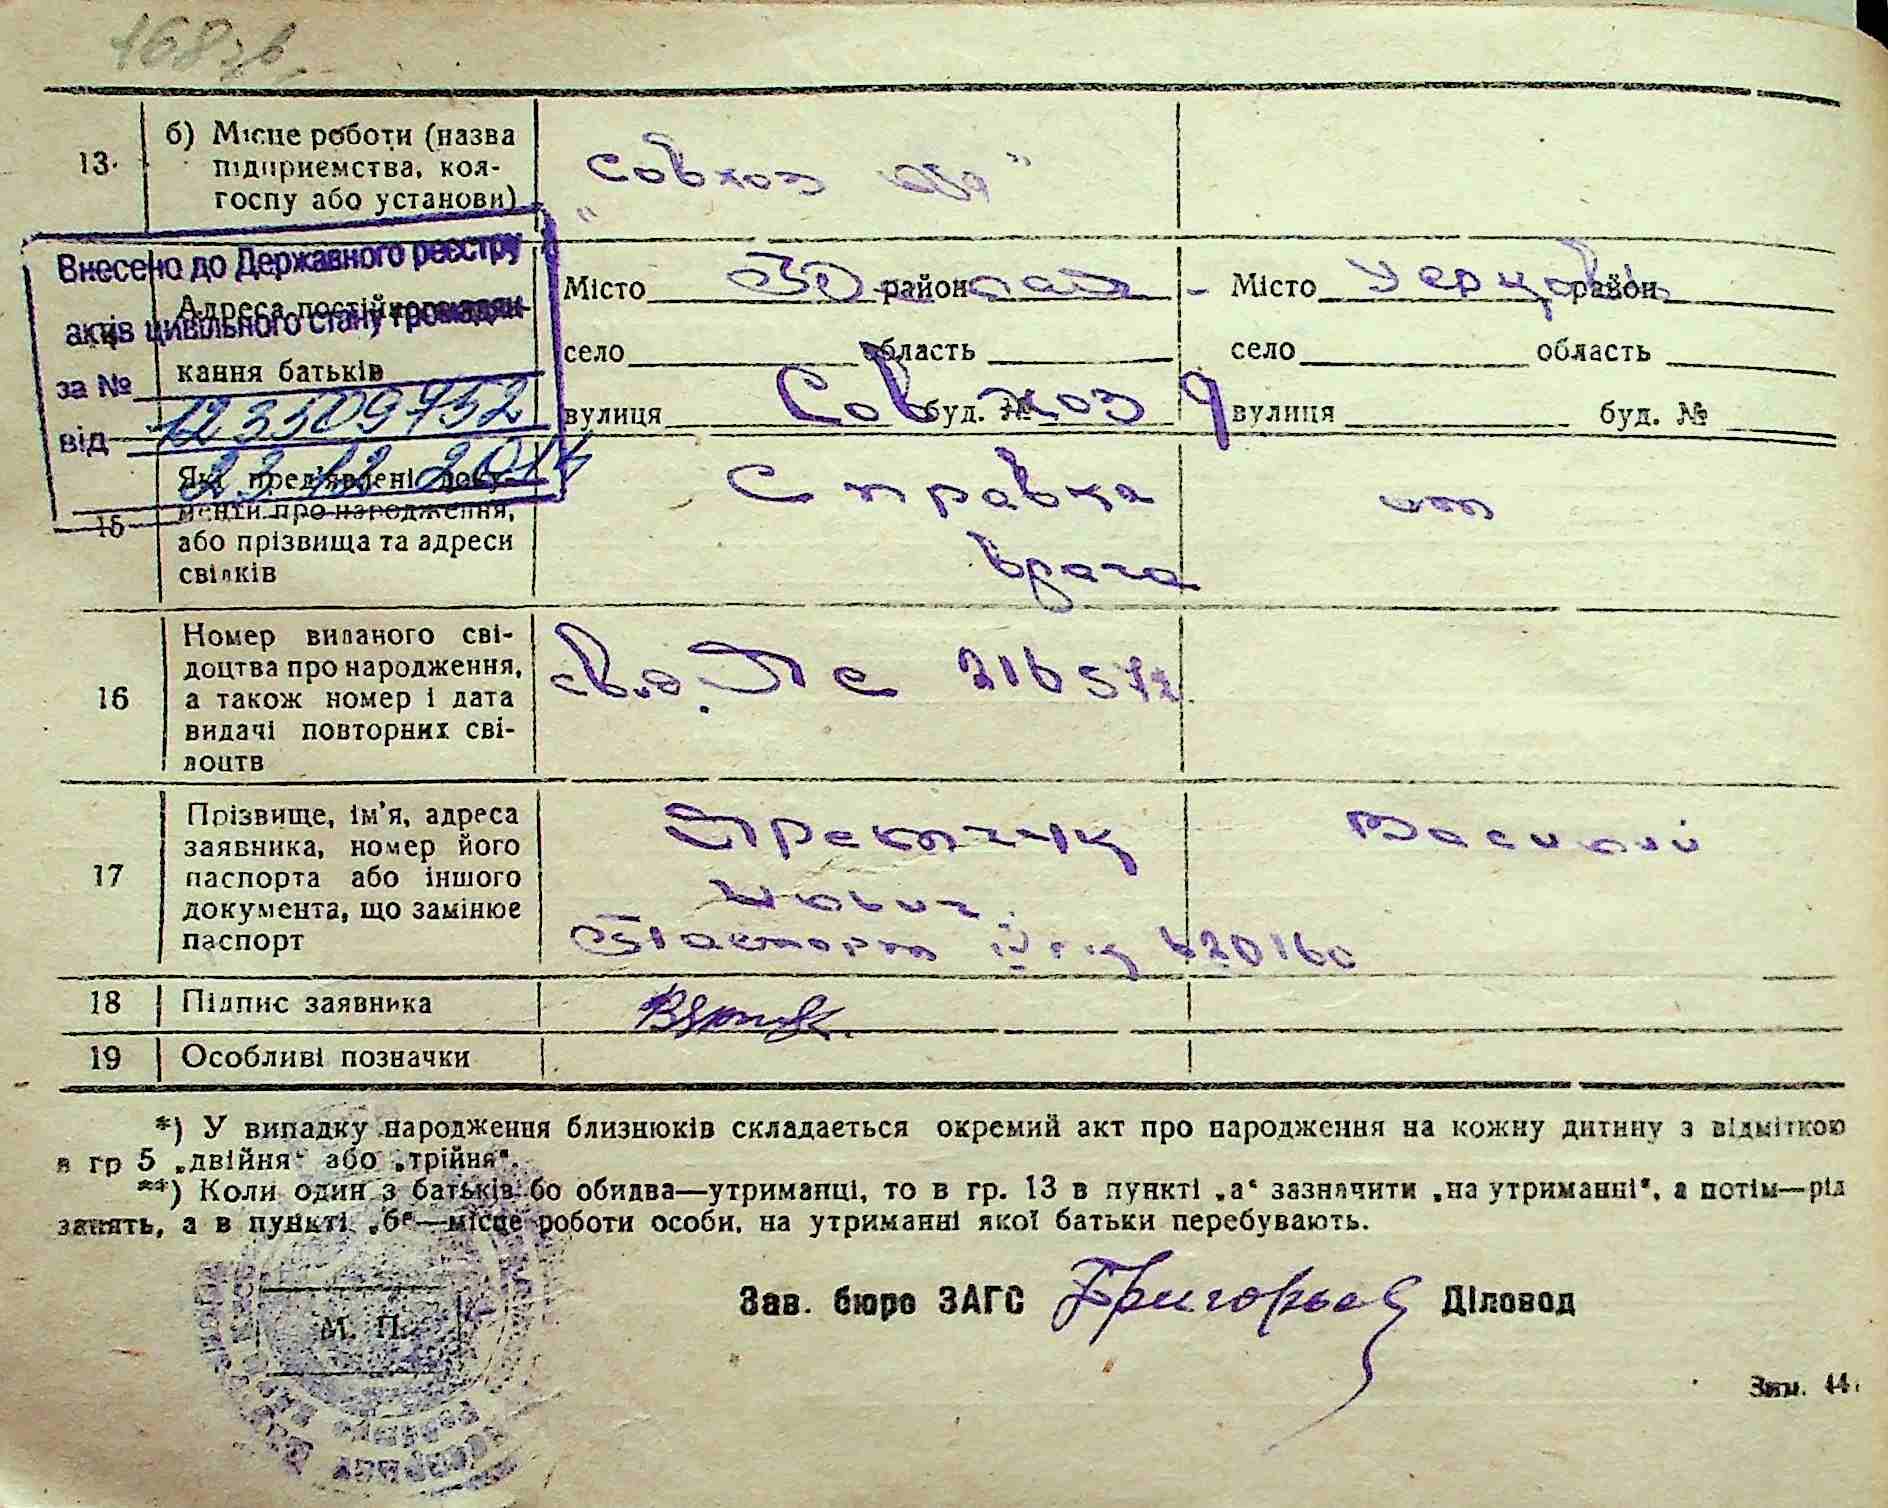 168зв
13.
б) Місце роботи (назва
підприємства, кол-
госпу або установи)
"Совхоз
Внесено до Державного реєстру
актів цивільного стану громадян
за №
від 23 12 20
Адреса постійного
кання батьків
Місто район
село область
вулиця буд. №
Совхоз 9
Місто район
село область
вулиця буд. №
15
Які пред'явлені доку-
менти про народження,
або прізвища та адреси
свідків
Справка от
врача
16
Номер виданого сві-
доцтва про народження,
а також номер і дата
видачі повторних сві-
доцтв
216572
17
Прізвище, ім'я, адреса
заявника, номер його
паспорта або іншого
документа, що замінює
паспорт
Василий
Паспорт 420160
18 Підпис заявника
19 Особливі позначки
*) У випадку народження близнюків складається окремий акт про народження на кожну дитину з відміткою
в гр 5 „двійня“ або „трійня“.
**) Коли один з батьків бо обидва—утриманці, то в гр. 13 в пункті „а“ зазначити „на утриманні“, а потім—рід
занять, а в пункті „б“—місце роботи особи, на утриманні якої батьки перебувають.
М. П.
Зав. бюро ЗАГС Григорьев Діловод
Зам. 44.